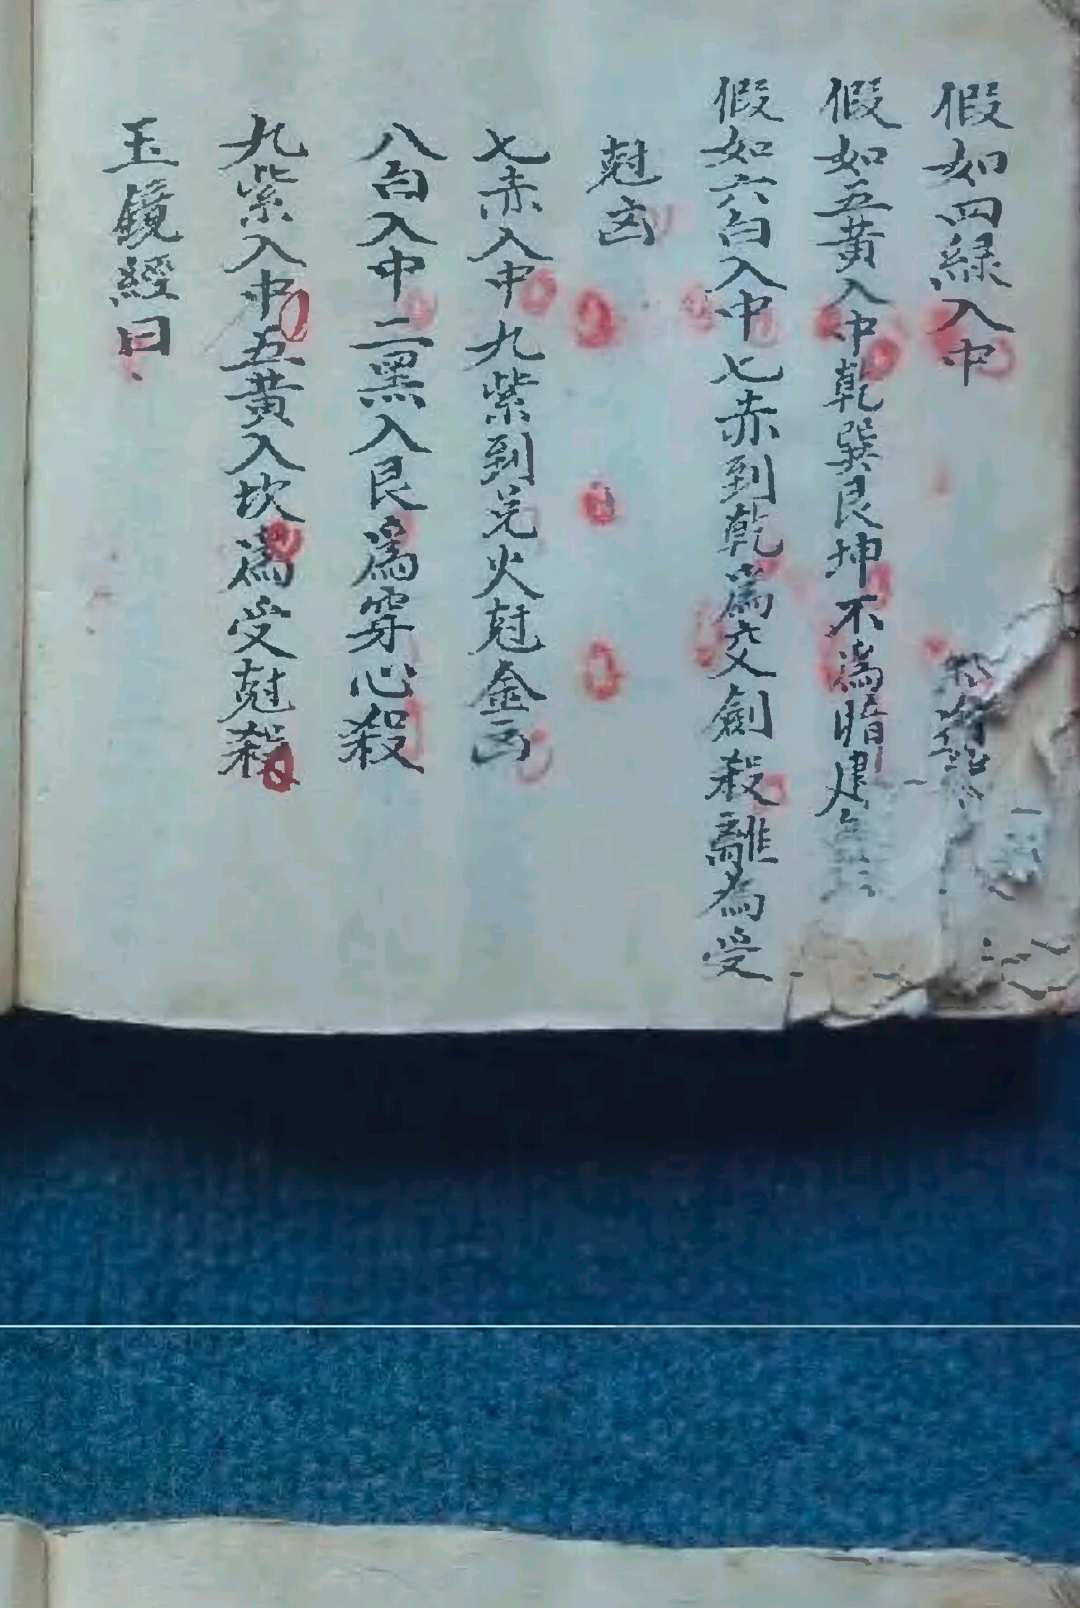 假如四綠入中
假如五黃入中乾巽艮坤不為暗建
假如六白入中七赤到乾為交劍殺離為受
尅凶
七赤入中九紫到兑火尅金凶
八白入中二黑入艮為穿心殺
九紫入中五黃入坎為受尅殺
玉鏡經曰